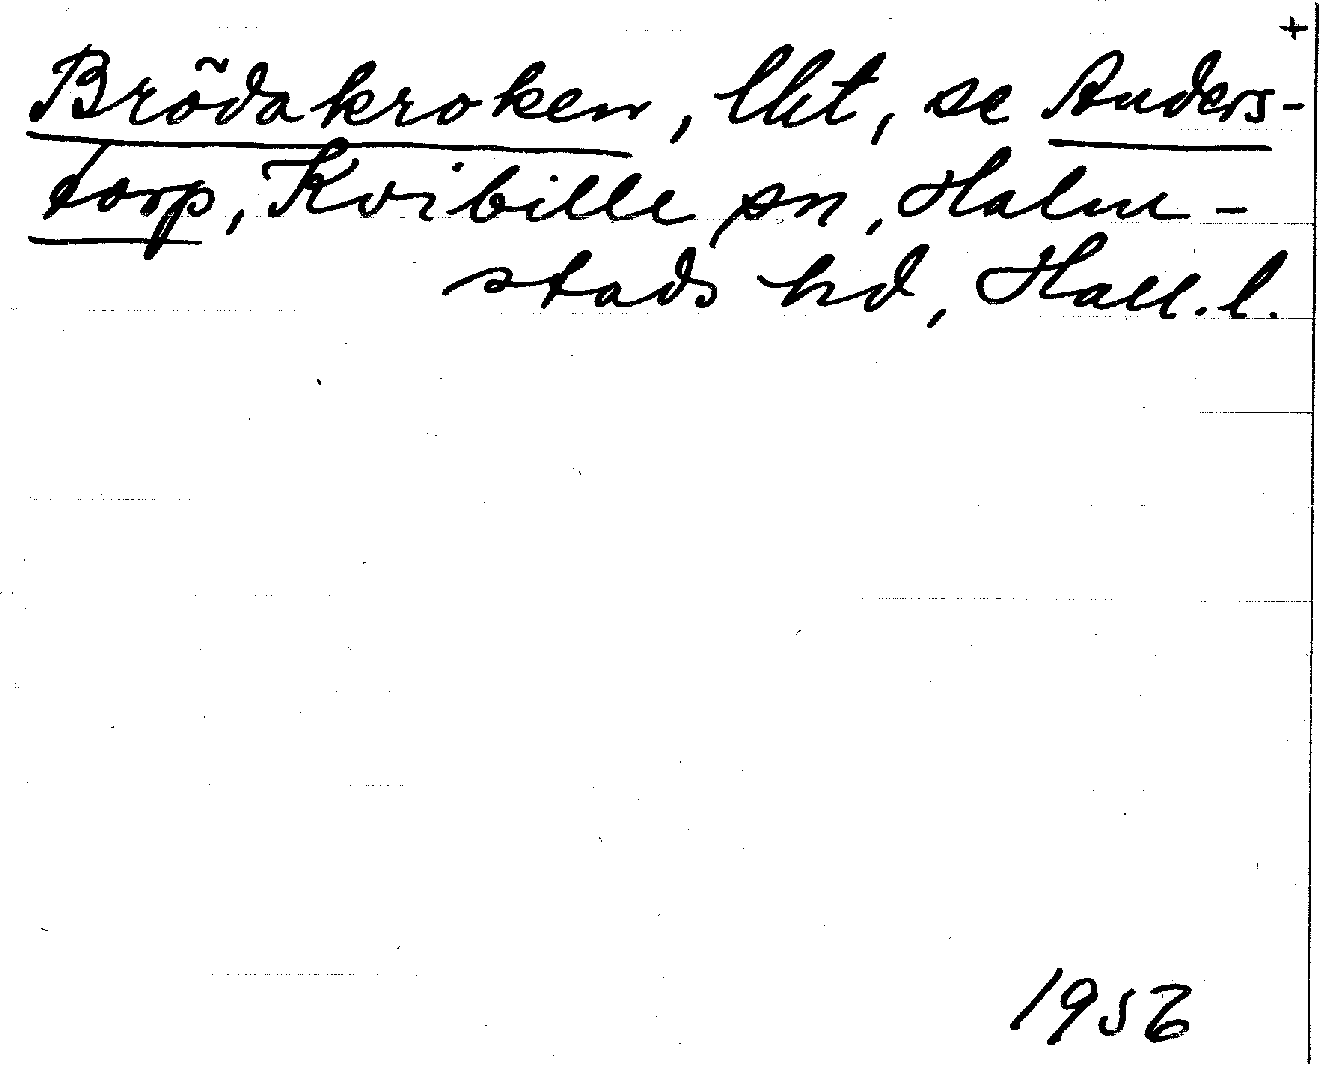 +
Brödakroken, lht, se Anders-
torp, Kvibille sn, Halm-
stads hd, Hall. l.
1956